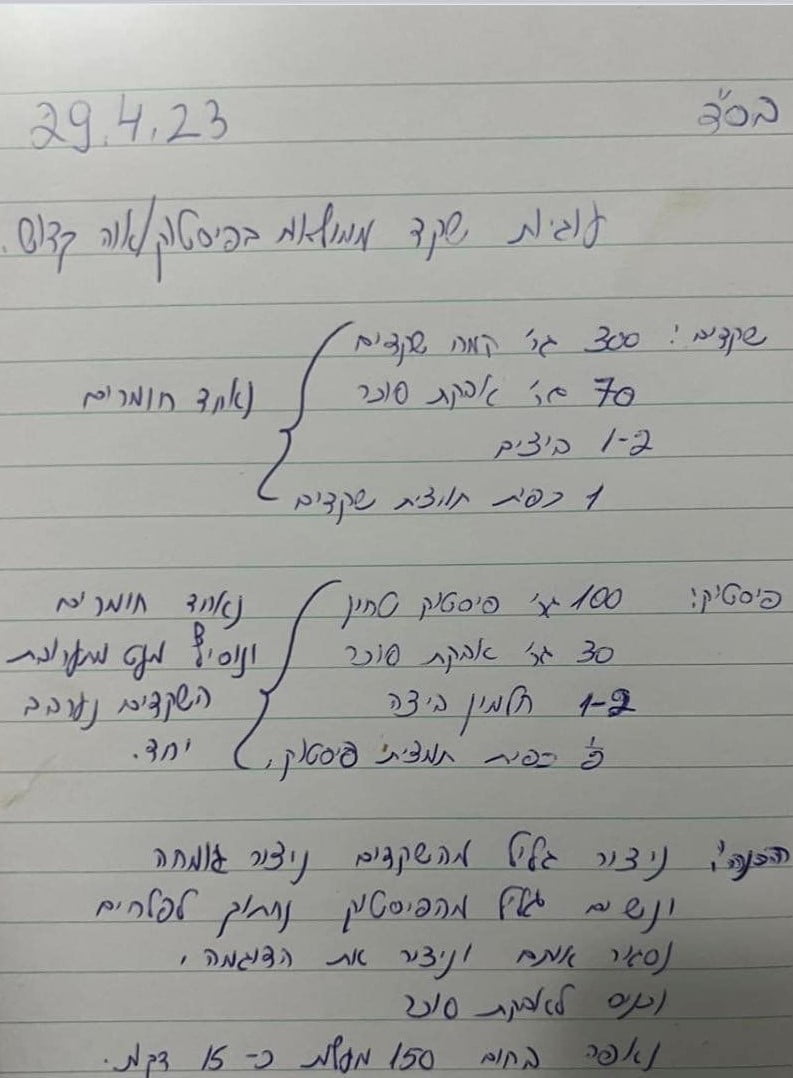 בס"ד
29.4.23
עוגיות שקד ממולאות בפיסטוק/אוה קדוש.
שקדים: 300 גר' קמח שקדים
70 גר' אבקת סוכר
1-2 ביצים
1 כפית תמצית שקדים
נאחד חומרים
פיסטוק: 100 גר' פיסטוק טחון
30 גר' אבקת סוכר
1-2 חלמון ביצה
כפית תמצית פיסטוק.
נאחד חומרים
ונוסיף מעט מתערובת
השקדים נערבב
יחד.
הכנה: ניצור גליל מהשקדים ניצור גומחה
ונשים גליל מהפיסטוק נחתוך לפלחים
נסגור אותם וניצור את הדוגמה.
נכניס לאבקת סוכר
נאפה בחום 150 מעלות כ-15 דקות.